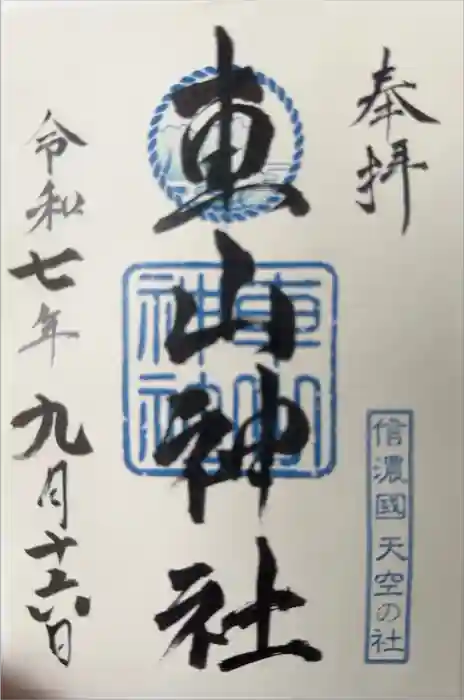 奉拝
信濃國天空の社
東山神社
東山神社
令和七年九月十六日